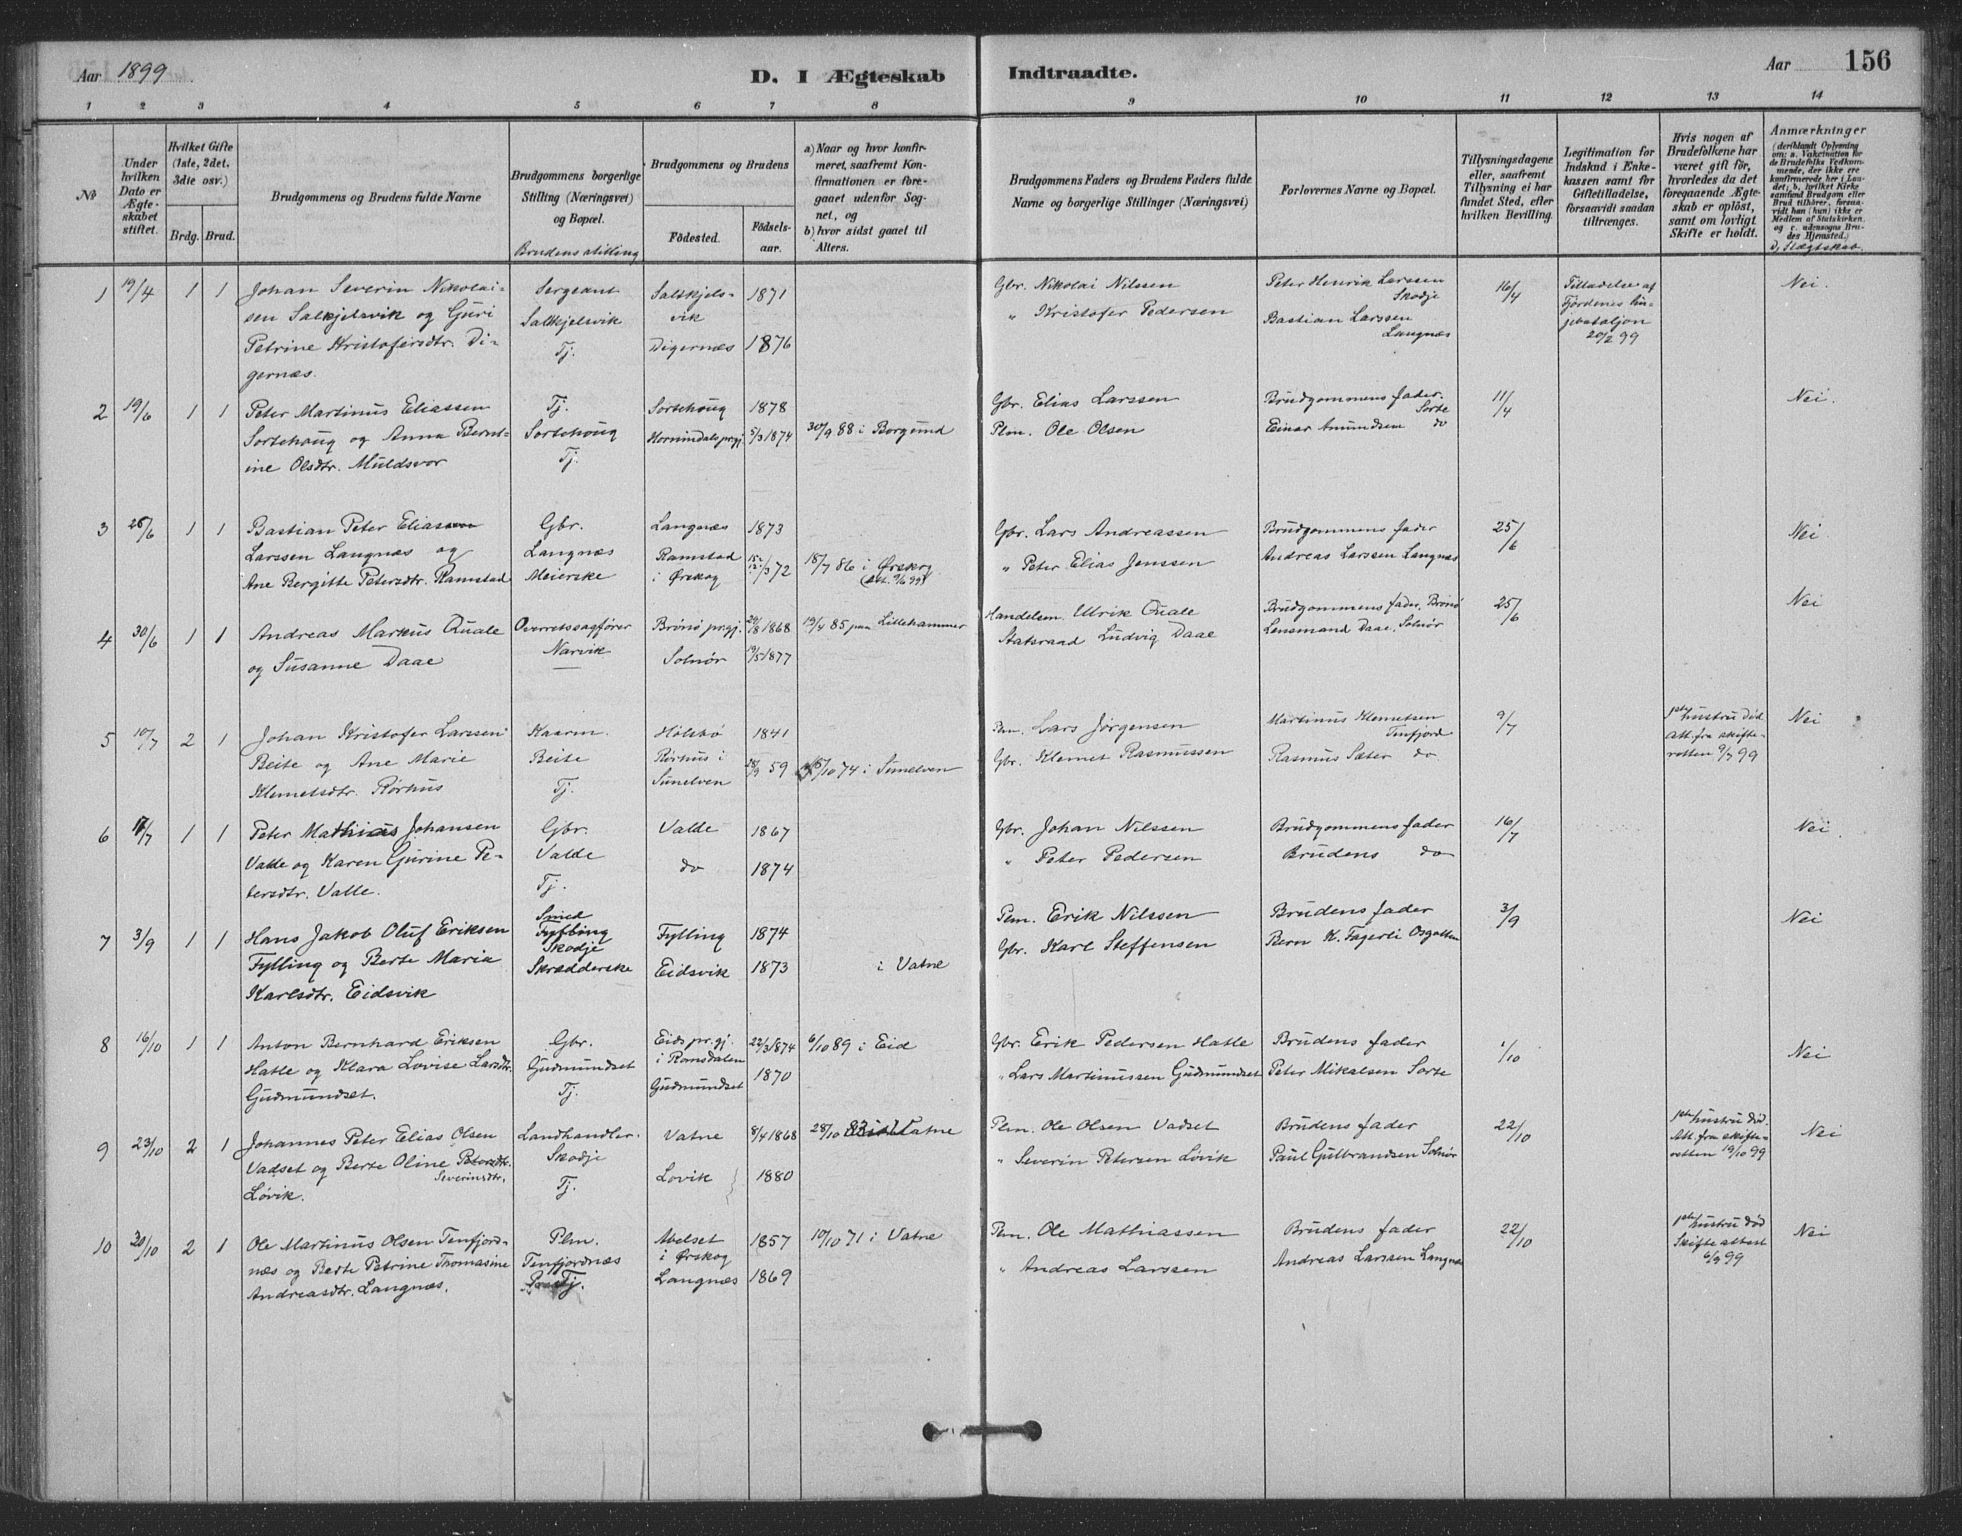 Aar 1899
D. I Ægteskab
Indtraadte.
Aar 156
1 2 3 4 5 6 7 8 9 10 11 12 13 14
No
Under hvilken Dato er Ægteskabet stiftet.
Hvilket Gifte (1ste, 2det, 3die osv.)
Brdg. Brud.
Brudgommens og Brudens fulde Navne
Brudgommens borgerlige Stilling (Næringsvei) og Bopæl.
Brudens stilling
Brudgommens og Brudens
Fødested.
Fødselsaar.
a) Naar og hvor konfirmeret, saafremt Konfirmationen er foregaaet udenfor Sognet, og
b) hvor sidst gaaet til Alters.
Brudgommens Faders og Brudens Faders fulde Navne og borgerlige Stillinger (Næringsvei)
Forlovernes Navne og Bopæl.
Tillysningsdagene eller, saafremt Tillysning ei har fundet Sted, efter hvilken Bevilling.
Legitimation for Indskud i Enkekassen samt for Giftetilladelse, forsaavidt saadan tiltrænges.
Hvis nogen af Brudefolkene har været gift før, hvorledes da det foregaaende Ægteskab er opløst, samt om lovligt Skifte er holdt.
Anmærkninger (deriblandt Oplysning om: a. Vakcination for de Brudefolks Vedkommende, der ikke ere konfirmerede her i Landet; b. hvilket Kirkesamfund Brudgom eller Brud tilhører, forsaavidt han (hun) ikke er Medlem af Statskirken, og c. udensogns Brudes Hjemsted.)
D, Slægtskab.
1 19/4 1 1 Johan Severin Nikolai- Sergeant Saltkjels- 1871 Gbr. Nikolai Nilssen Peter Henrik Larssen 16/4 Tilladelse af Nei.
sen Salkjelsvik og Guri Salkjelsvik vik " Kristofer Pedersen Skodje Fjordenes
Petrine Kristofersdtr. Di- Tj. Digernæs 1876 Bastian Larssen
gernæs. Langnæs 20/2 99
2 19/6 1 1 Peter Martinus Eliassen Tj. Sortehoug 1878 Gbr. Elias Larssen Brudgommens fader. Sorte 11/4 Nei.
Sortehoug og Anna Bernt- Sortehoug Hornindals prgj. 5/3 1874 30/9 88 i Borgund Plm. Ole Olsen Einar Amundsen do
ine Olsdtr. Muldsvor Tj.
3 26/6 1 1 Bastian Peter Eliassen Gbr. Langnæs 1873 Gbr. Lars Andreassen Brudgommens fader 25/6 Nei
Larssen Langnæs og Langnæs Ramstad 12/3 72 18/7 86 i Ørskog " Peter Elias Jenssen Andreas Larssen Langnæs
Ane Bergitte Petersdtr. Ramstad Meierske i Ørskog (Att. 9/6 99)
4 30/6 1 1 Andreas Markus Quale Overretssagfører Brønø prgj. 29/8 1868 19/4 85 paa Lillehammer Handelsm. Ulrik Quale Brudgommens fader. Brønø 25/6 Nei
og Susanne Daae Narvik Solnør 19/5 1877 Statsraad Ludvig Daae Lensmand Daae, Solnør
5 10/7 2 1 Johan Kristofer Larssen Kaarm. Holebø 1841 Pm. Lars Jørgensen Martinus Klemetsen Tenfjord 9/7 1ste hustru død Nei
Beite og Ane Marie Beite Rørhus i 59 5/10 74 i Sunelven Gbr. Klemet Rasmussen Rasmus Sæter do. Att. fra skifte-
Klemetsdtr. Rørhus Tj. Sunelven retten 9/7 99
6 17/7 1 1 Peter Mathias Johansen Gbr. Valde 1867 Gbr. Johan Nilssen Brudgommens fader 16/7 Nei.
Valde og Karen Gurine Pe- Valde do 1874 " Peter Pedersen Brudens do
tersdtr. Valle. Tj.
7 3/9 1 1 Hans Jakob Oluf Eriksen Smed Fylling Fylling 1874 Plm. Erik Nilssen Brudens fader 3/9 Nei
Fylling og Berte Maria Skodje Eidsvik 1873 i Vatne Gbr. Karl Steffensen Bern K. Fagerli Osgotten
Karlsdtr. Eidsvik Skrædderske
8 16/10 1 1 Anton Bernhard Eriksen Gbr. Eids pr.gj. 22/3 1874 6/10 89 i Eid Gbr. Erik Pedersen Hatle Brudens fader 1/10 Nei
Hatle og Klara Lovise Larsdtr. Gudmundset i Romsdalen 1870 " Lars Martinussen Gudmundset Peter Mikalsen Sorte
Gudmundset. Tj. Gudmundset
9 23/10 2 1 Johannes Peter Elias Olsen Landhandler. Vatne 8/4 1868 28/10 83 i Vatne Plm. Ole Olsen Vadset Brudens fader 22/10 1ste hustru død. Nei
Vadset og Berte Oline Petersdtr. Skodje Lovik 1880 " Severin Petersen Lövik Paul Gulbrandsen Solnør Att. fra skifte-
Severinsdtr. Lövik. Tj. retten 19/10 99
10 30/10 2 1 Ole Martinus Olsen Tenfjord- Plm. Abelset 1857 10/10 71 i Vatne Pm. Ole Mathiassen Brudens fader 22/10 1ste hustru død Nei
næs og Berte Petrine Thomasine Tenfjordnæs i Ørskog " Andreas Larssen Andreas Larssen Langnæs Skifteattest
Andreasdtr. Langnæs. Tj. Langnæs 1869 6/9 99